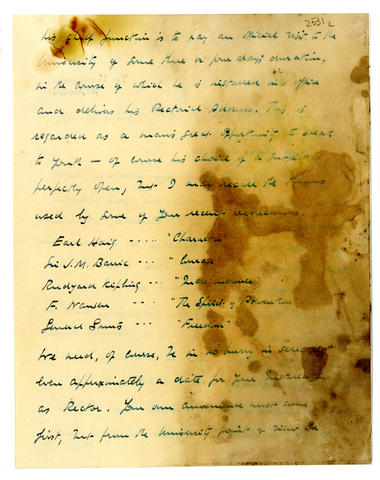 2531 L
his chief function is to pay an official visit to the
University of some three or four days duration,
in the course of which he is installed into office
and delivers his Rectorial Address. This is
regarded as a man's great opportunity to speak
to Youth — of course his choice of a subject is
perfectly open, but I may recall the themes
used by some of your recent predecessors.
Earl Haig ..... "Character"
Sir J.M. Barrie ... "Courage"
Rudyard Kipling ... "Independence"
F. Nansen ... "The Spirit of Adventure"
General Smuts ... "Freedom"
We need, of course, be in no hurry in
even approximately a date for your Installation
as Rector. Your own convenience must come
first, but from the University point of view